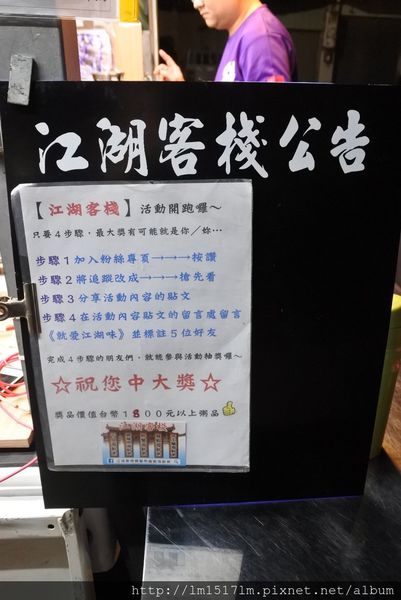 江湖客棧公告
【江湖客棧】活動開跑囉～
只要4步驟，最大獎有可能就是你／妳…
步驟1加入粉絲專頁→→→按讚
步驟2將追蹤改成→→→搶先看
步驟3分享活動內容的貼文
步驟4在活動內容貼文的留言處留言
《就愛江湖味》並標註5位好友
完成4步驟的朋友們，就能參與活動抽獎囉～
☆祝您中大獎☆
獎品價值台幣1800元以上粥品
江湖客棧
http://lm1517lm.pixnet.net/album